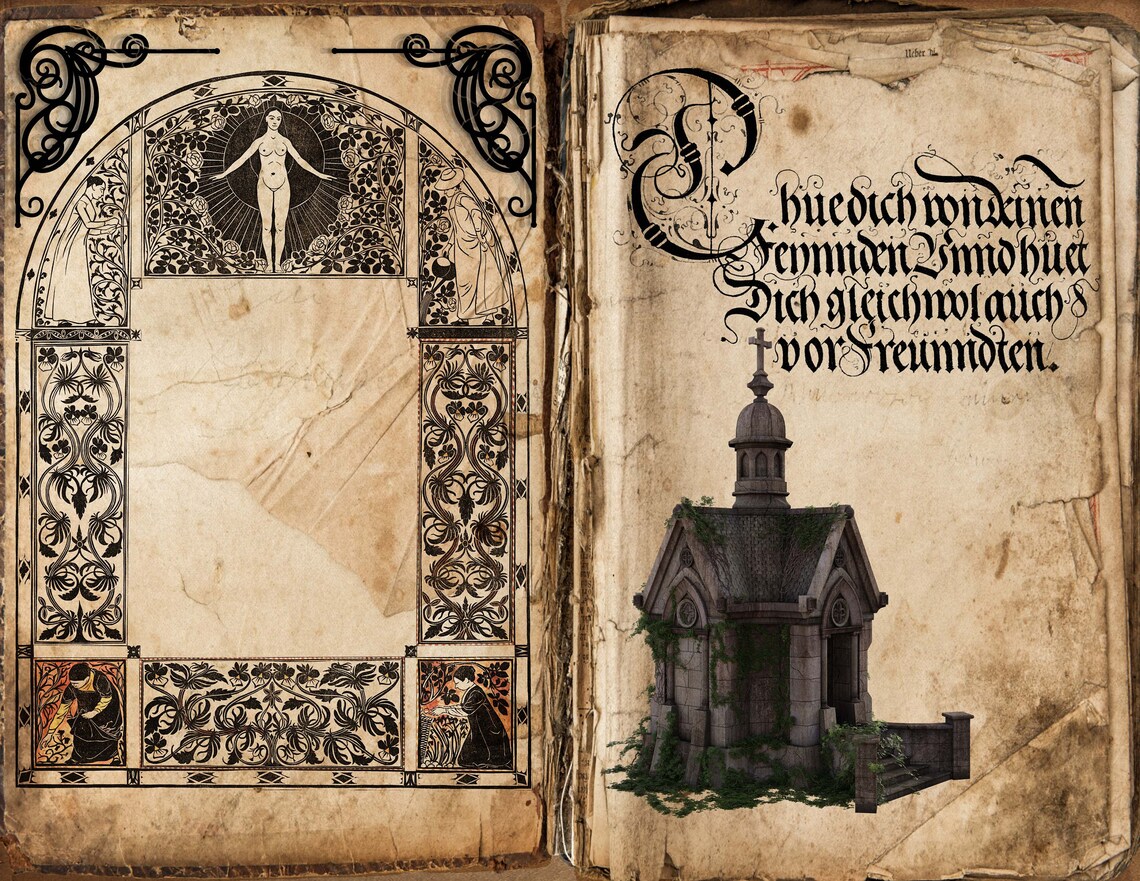 Ueber
Thue dich von deinen
Feynnden Vnnd huet
Dich gleichwol auch
vor Freunndten.